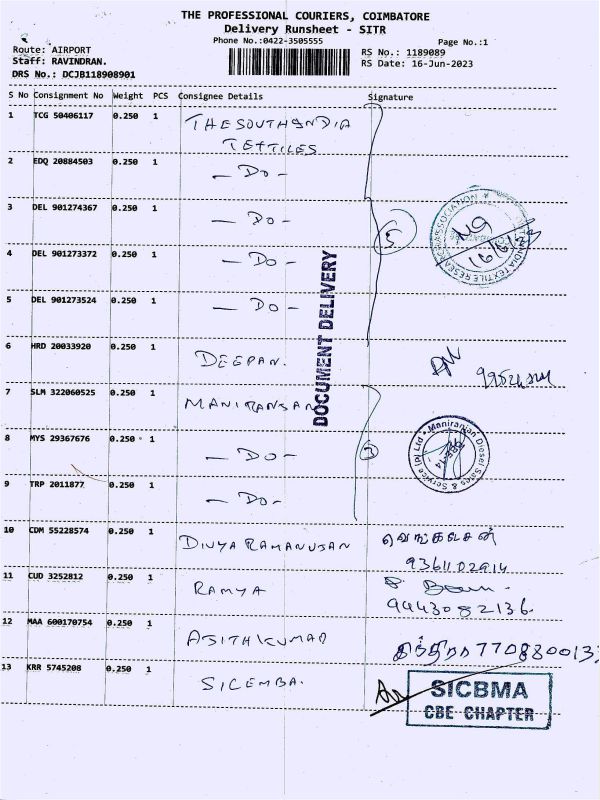 THE PROFESSIONAL COURIERS, COIMBATORE
Delivery Runsheet - SITR
Phone No.:0422-3505555
Page No.:1
Route: AIRPORT
RS No.: 1189089
Staff: RAVINDRAN.
RS Date: 16-Jun-2023
DRS No.: DCJB118908901
S No Consignment No Weight PCS Consignee Details Signature
1 TCG 50406117 0.250 1 THE SOUTH INDIA
TEXTILES
2 EDQ 20884503 0.250 1 - DO -
3 DEL 901274367 0.250 1 - DO -
5
4 DEL 901273372 0.250 1 - DO -
5 DEL 901273524 0.250 1 - DO -
DOCUMENT DELIVERY
6 HRD 20033920 0.250 1 DEEPAN.
7 SLM 322060525 0.250 1 MANIRANJAN
8 MYS 29367676 0.250 1 - DO -
3
Maniranjan Diesel Sales & Service (p) Ltd
9 TRP 2011877 0.250 1 - DO -
10 CDM 55228574 0.250 1 DIVYA RAMANUJAN
9361102914
11 CUD 3252812 0.250 1 RAMYA
9443082136
12 MAA 600170754 0.250 1 AJITHKUMAR
13 KRR 5745208 0.250 1 SICEMBA.
SICBMA
CBE CHAPTER